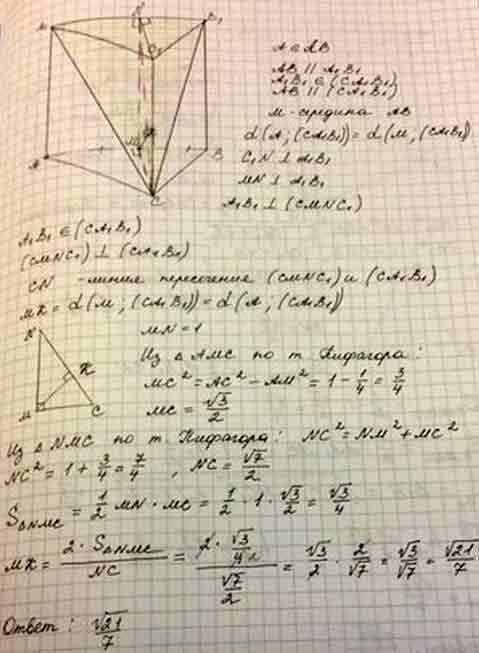 A ∈ AB
AB || A₁B₁
A₁B₁ ∈ (CA₁B₁)
AB || (CA₁B₁)
M - середина AB
d(A; (CA₁B₁)) = d(M, (CA₁B₁)
C₁N ⊥ A₁B₁
MN ⊥ A₁B₁
A₁B₁ ⊥ (CMNC₁)
A₁B₁ ∈ (CA₁B₁)
(CMNC₁) ⊥ (CA₁B₁)
CN - линия пересечения (CMNC₁) и (CA₁B₁)
MK = d(M; (CA₁B₁)) = d(A; (CA₁B₁))
MN = 1
Из Δ AMC по т. Пифагора:
MC² = AC² - AM² = 1 - 1/4 = 3/4
MC = √3/2
N
K
M
C
Из Δ NMC по т. Пифагора: NC² = NM² + MC²
NC² = 1 + 3/4 = 7/4 , NC = √7/2
S ΔNMC = 1/2 MN · MC = 1/2 · 1 · √3/2 = √3/4
MK = 2 · S ΔNMC / NC = (2 · √3/4 2) / (√7/2) = √3/2 · 2/√7 = √3/√7 = √21/7
Ответ: √21/7
A₁
N
B₁
C₁
A
M
K
B
C